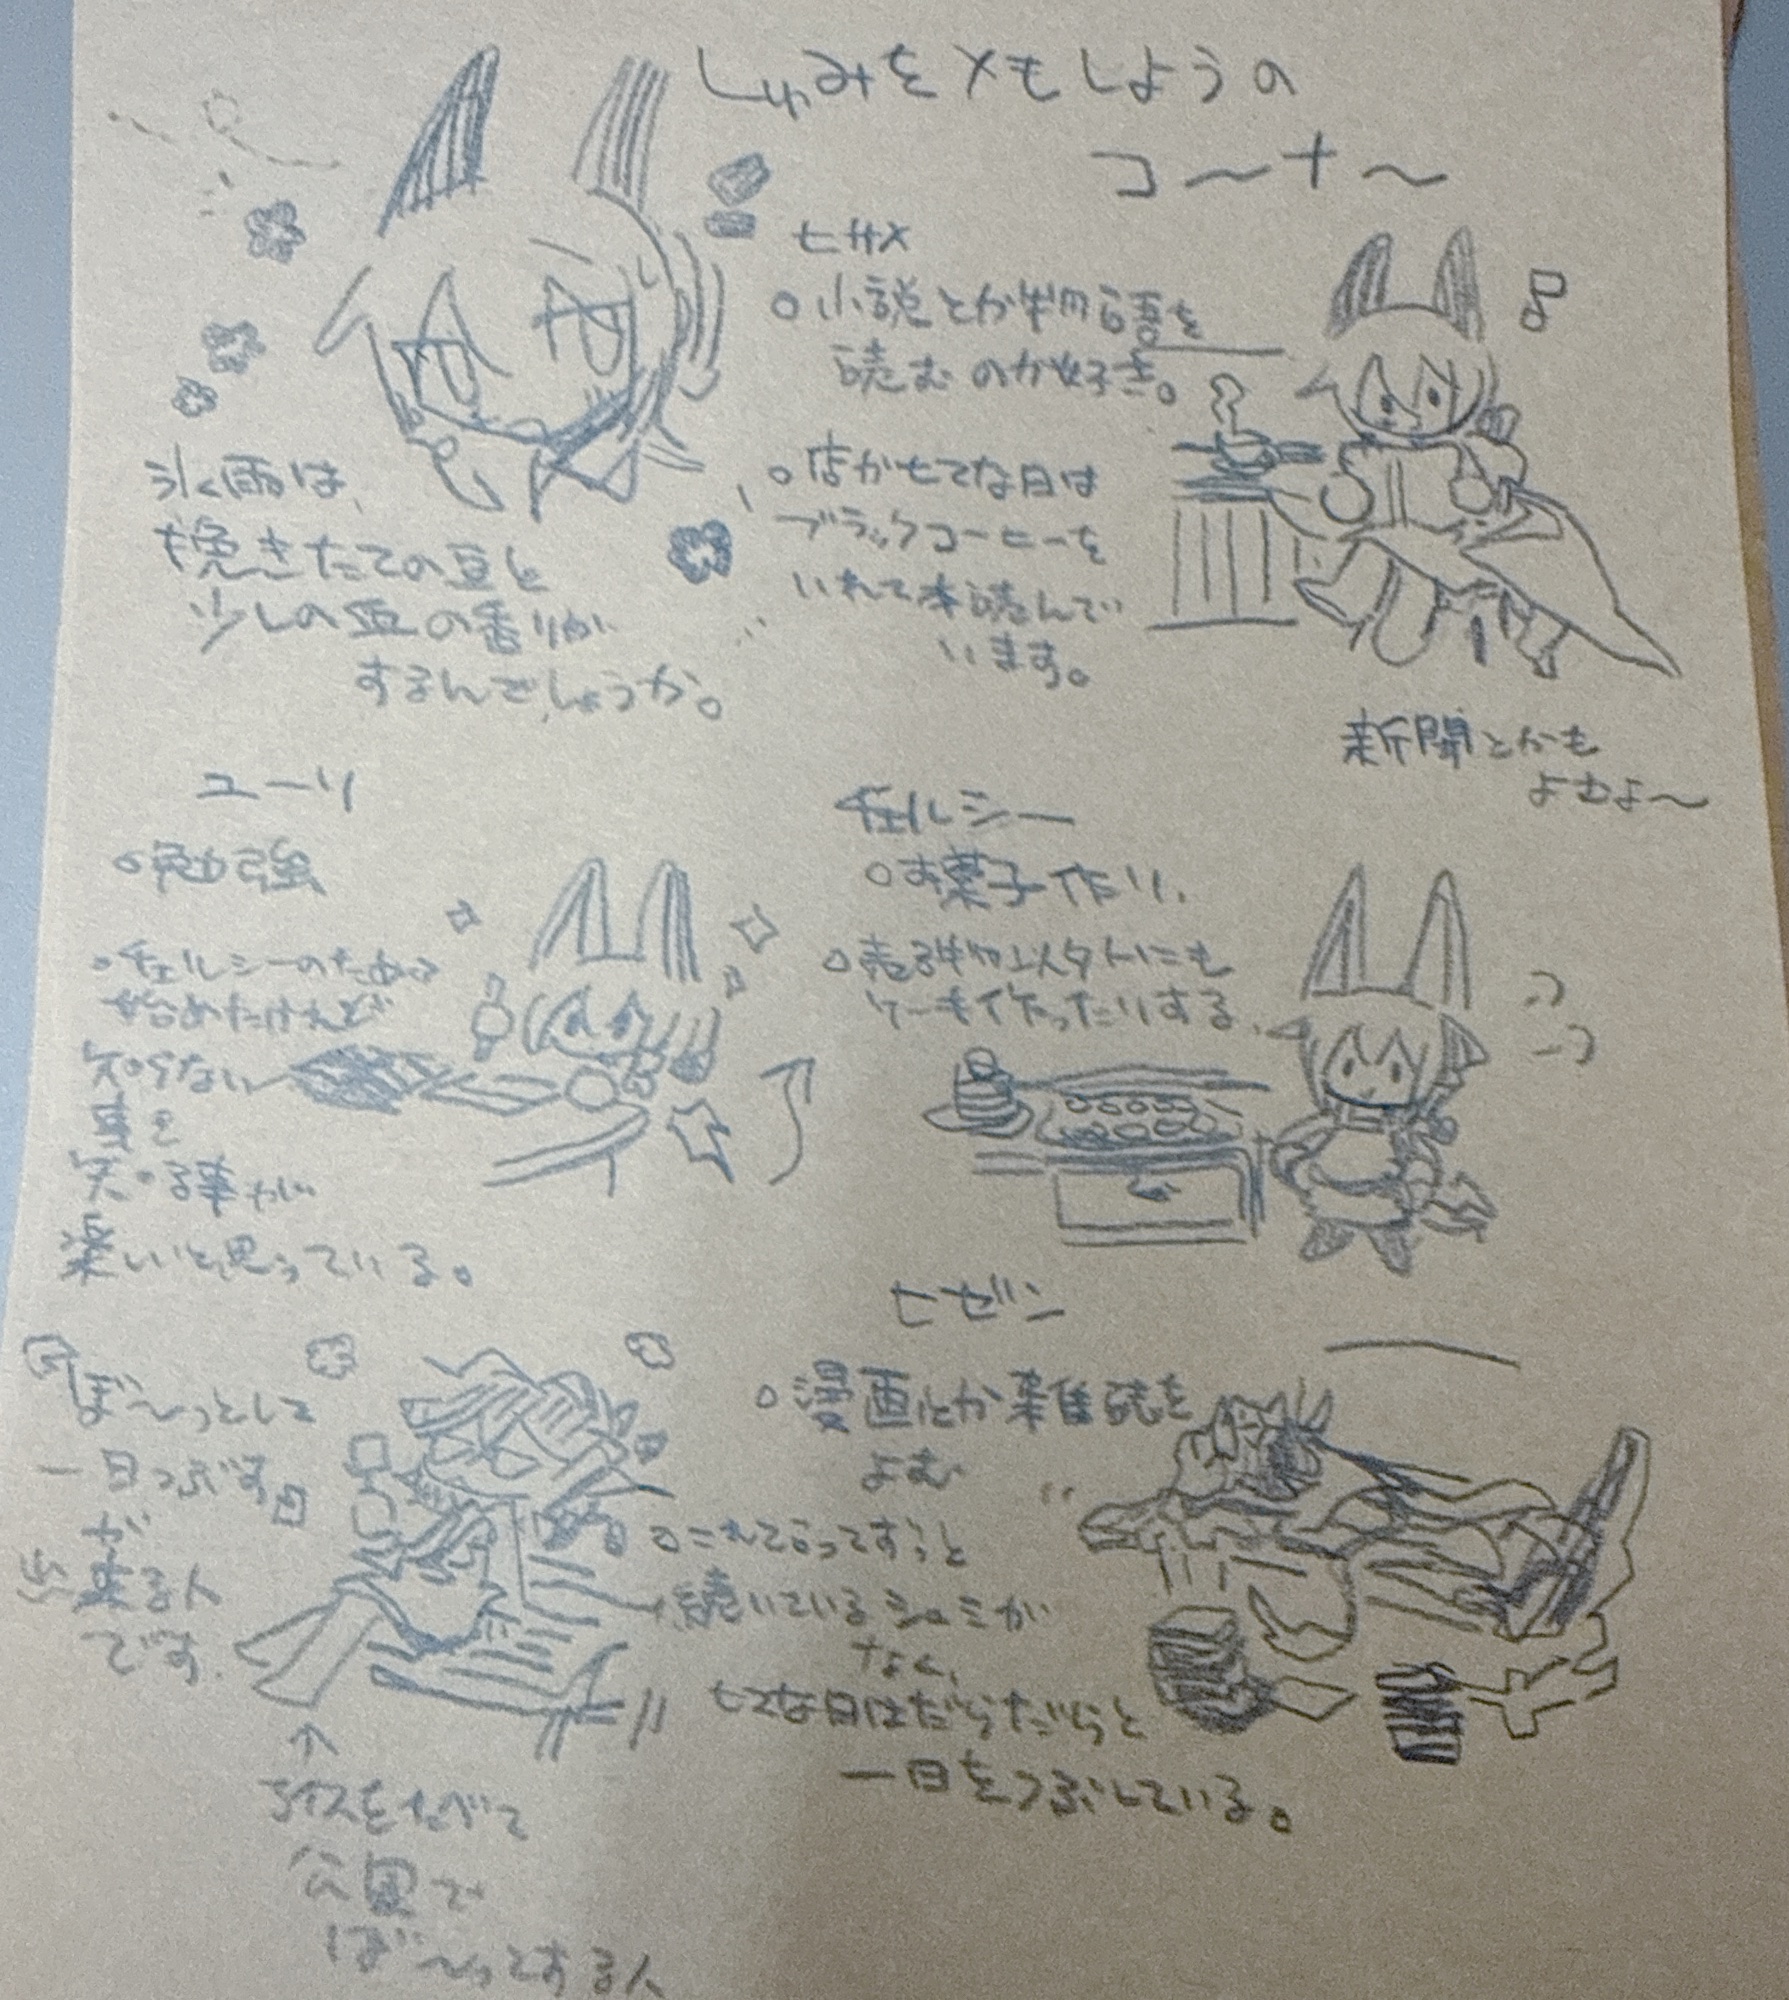 しゅみをメモしようの
コ〜ナ〜
ヒサメ
○小説とか物語を
読むのが好き。
○店がヒマな日は
ブラックコーヒーを
いれて本読んでい
います。
新聞とかも
よむよ〜
氷雨は、
挽きたての豆と
少しの血の香りが
するんでしょうか。
ユーリ
○勉強
○チェルシーのために
始めたけれど
知らない
事を
知る事が
楽しいと思っている。
チェルシー
○お菓子作り、
○売り物以外にも
ケーキ作ったりする、
ヒゼン
○漫画とか雑誌を
よむ
○これと言ってずっと
続いているシュミが
なく、
ヒマな日はだらだらと
一日をつぶしている。
「ぼ〜っとして
一日つぶす」
が
出来る人
です.
↑
アイスをたべて
公園で
ぼ〜っとする人